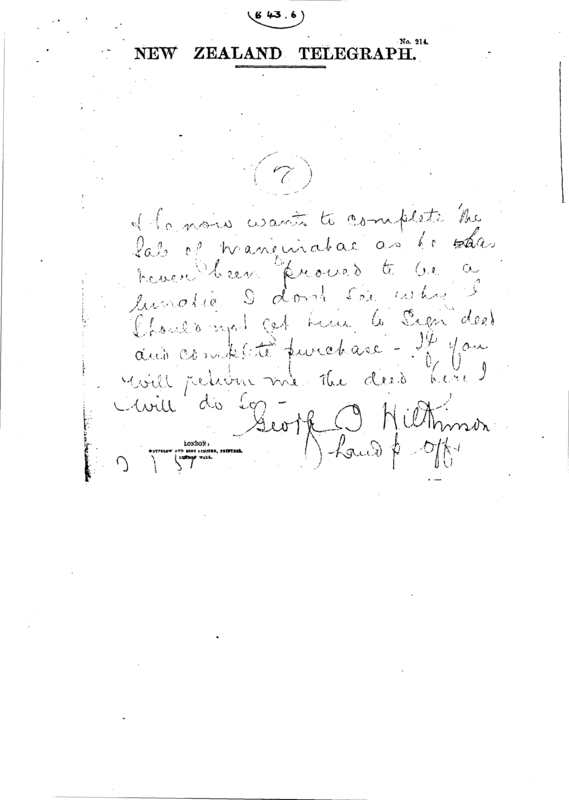 (B 43.6)
No. 214.
NEW ZEALAND TELEGRAPH.
7
& he now wants to complete the
Sale of as he has
never been proved to be a
lunatic I dont see why I
should not get him to sign deed
and complete purchase - If you
will return me the deed here I
will do so -
George T Wilkinson
Land p Offr
LONDON:
WATERLOW AND SONS LIMITED, PRINTERS,
LONDON WALL.